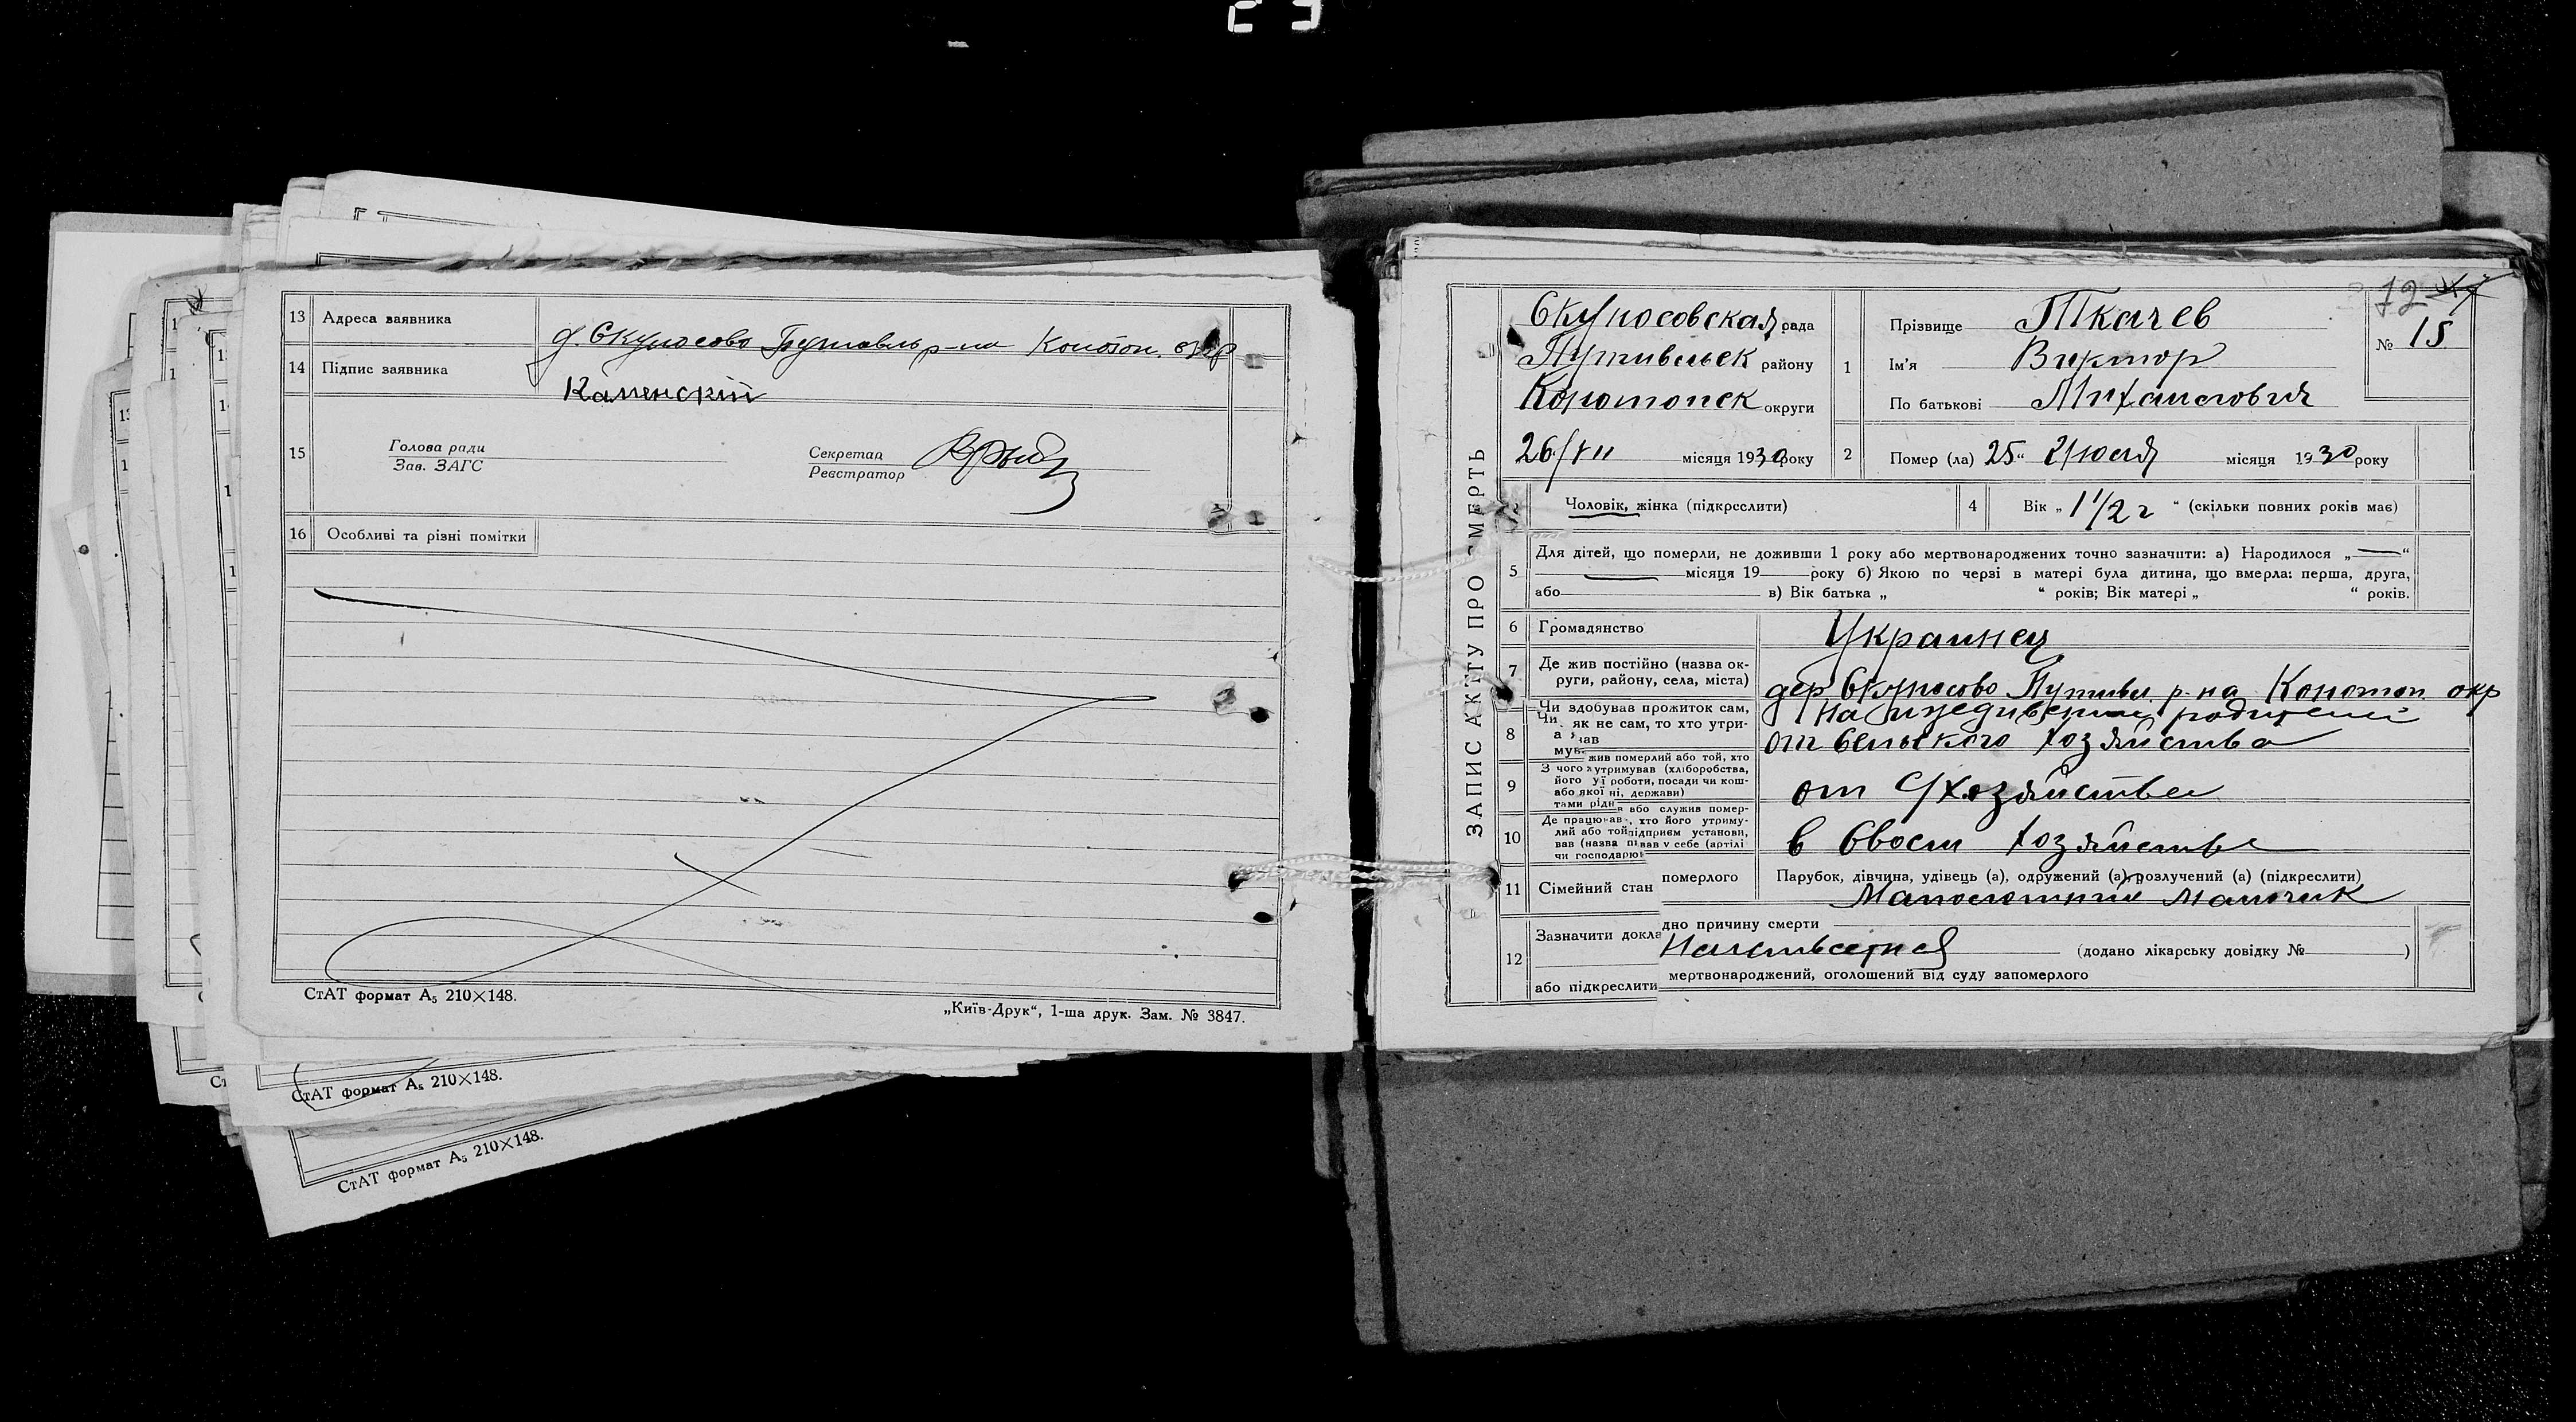 13 Адреса заявника д. Скуносово Путивль р-на Конотоп. окр
14 Підпис заявника Каменскій
15 Голова ради
Зав. ЗАГС
Секретар
Реєстратор
16 Особливі та різні помітки
СтАТ формат А5 210×148.
„Київ-Друк“, 1-ша друк. Зам. № 3847.
СтАТ формат А5 210×148.
СтАТ формат А5 210×148.
ЗАПИС АКТУ ПРО СМЕРТЬ
12
№ 15
Скуносовская рада
Путивльск району
Конотопск округи
26/VII місяця 1930 року
1 Прізвище Ткачев
Ім'я Виктор
По батькові Михайлович
2 Помер (ла) 25 „ Июля місяця 1930 року
Чоловік, жінка (підкреслити)
4 Вік „ 1 1/2 г “ (скільки повних років має)
5 Для дітей, що померли, не доживши 1 року або мертвонароджених точно зазначити: а) Народилося „ — “
місяця 19 року б) Якою по черзі в матері була дитина, що вмерла: перша, друга,
або в) Вік батька „ “ років; Вік матері „ “ років.
6 Громадянство Украинец
7 Де жив постійно (назва ок-
руги, району, села, міста) дер Скуносово Путивл р-на Конотоп окр
8 Чи здобував прожиток сам,
як не сам, то хто утри-
мував
на иждивении родителей
от сельского хозяйства
9 З чого жив померлий або той, хто
утримував (хліборобства,
його роботи, посади чи кош-
тами рідні, держави)
от С/хозяйства
10 Де працював або служив помер-
лий або той, хто його утриму-
вав (назва підприєм установи,
чи господарював у себе (артілі
в Своем хозяйстве
11 Сімейний стан померлого Парубок, дівчина, удівець (а), одружений (а), розлучений (а) (підкреслити)
Малолетний мальчик
12 Зазначити докладно причину смерти
(додано лікарську довідку № )
або підкреслити мертвонароджений, оголошений від суду запомерлого